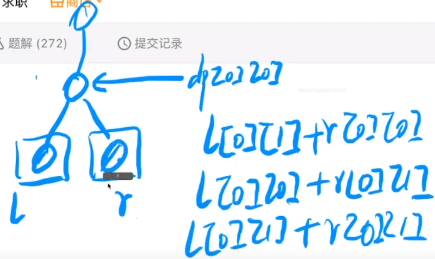 求职
题解 (272)
提交记录
dp[0][0]
L[0][1]+r[0][0]
L[0][0]+r[0][1]
L[0][1]+r[0][1]
L
r